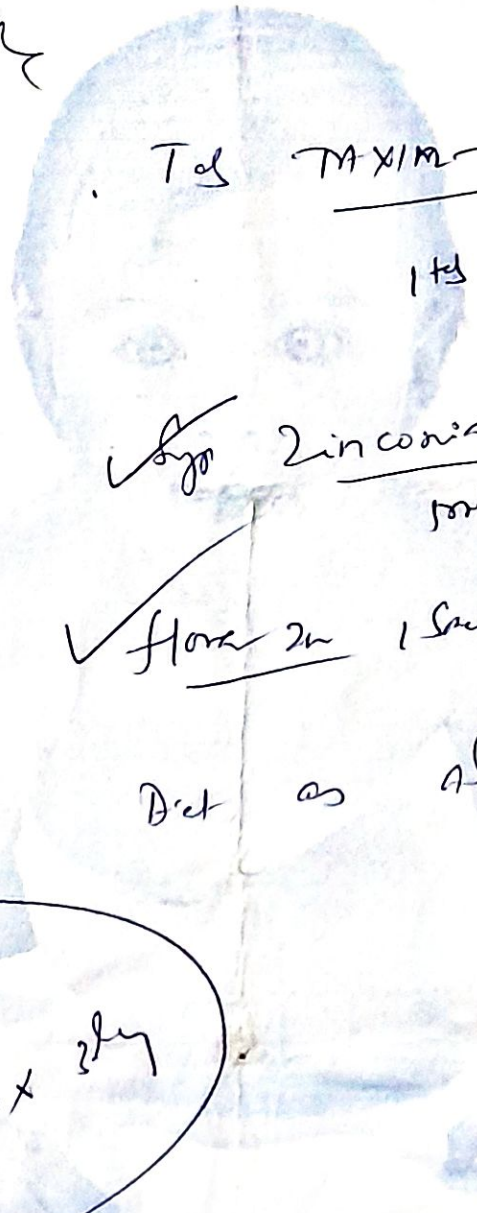 Tab TAXIM-
1 tab
Syp Zinconia
5ml
flora 2m 1 Sac
Diet as A
x 3 day